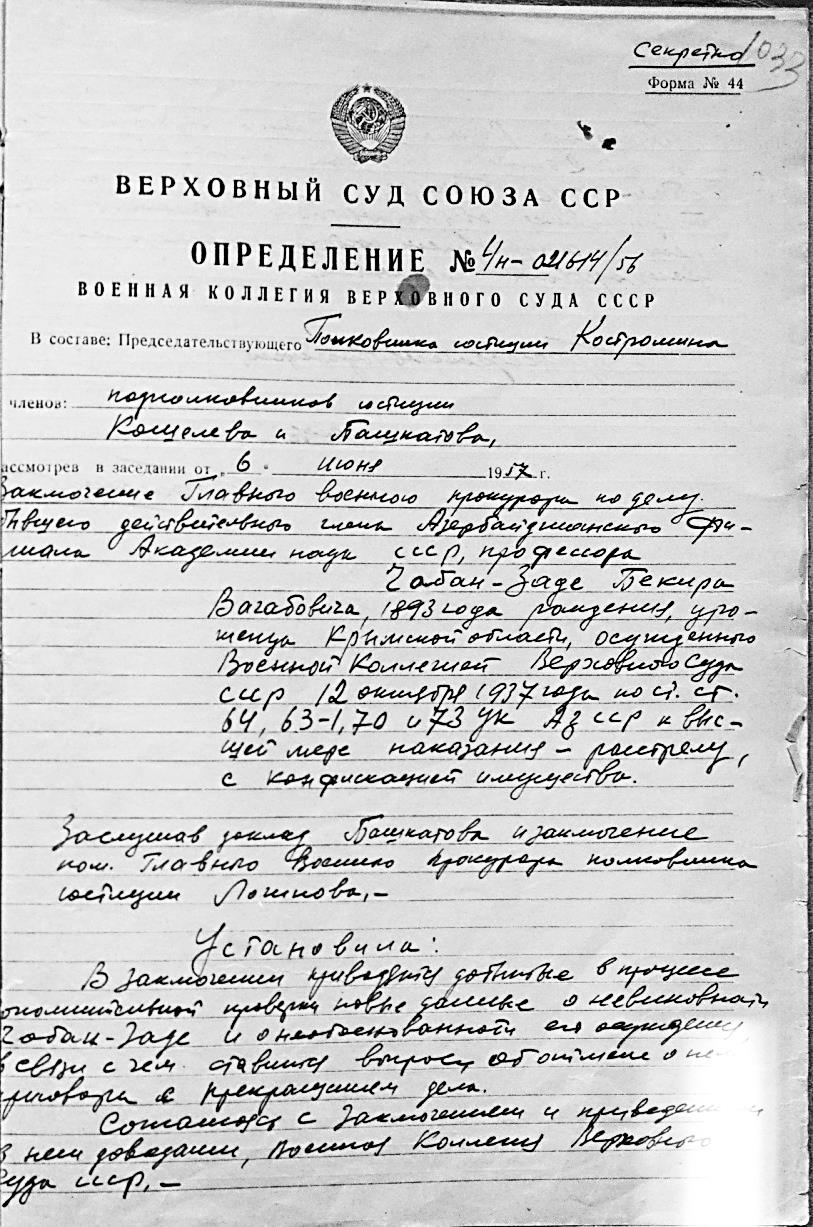 Секретно
1033
Форма № 44
ВЕРХОВНЫЙ СУД СОЮЗА ССР
ОПРЕДЕЛЕНИЕ № 4н-021614/56
ВОЕННАЯ КОЛЛЕГИЯ ВЕРХОВНОГО СУДА СССР
В составе: Председательствующего Полковника юстиции Костромина
членов: подполковников юстиции
Кощелева и Пашкатова,
ассмотрев в заседании от „6“ июня 1957 г.
Заключение Главного военного прокурора по делу
бывшего действительного члена Азербайджанского Фи-
лиала Академии наук СССР, профессора
Чобан-Заде Бекира
Вагабовича, 1893 года рождения, уро-
женца Крымской области, осужденного
Военной Коллегией Верховного Суда
СССР 12 октября 1937 года по ст. ст.
64, 63-1, 70 и 73 УК АзССР к выс-
шей мере наказания – расстрелу,
с конфискацией имущества.
Заслушав доклад Пашкатова и заключение
пом. Главного Военного Прокурора полковника
юстиции Логинова,–
Установила:
В заключении приводятся добытые в процессе
дополнительной проверки новые данные о невиновности
Чобан-Заде и о необоснованности его осуждения,
в связи с чем ставится вопрос об отмене о нем
приговора с прекращением дела.
Соглашаясь с заключением и приведенными
в нем доводами, Военная Коллегия Верховного
Суда СССР,–